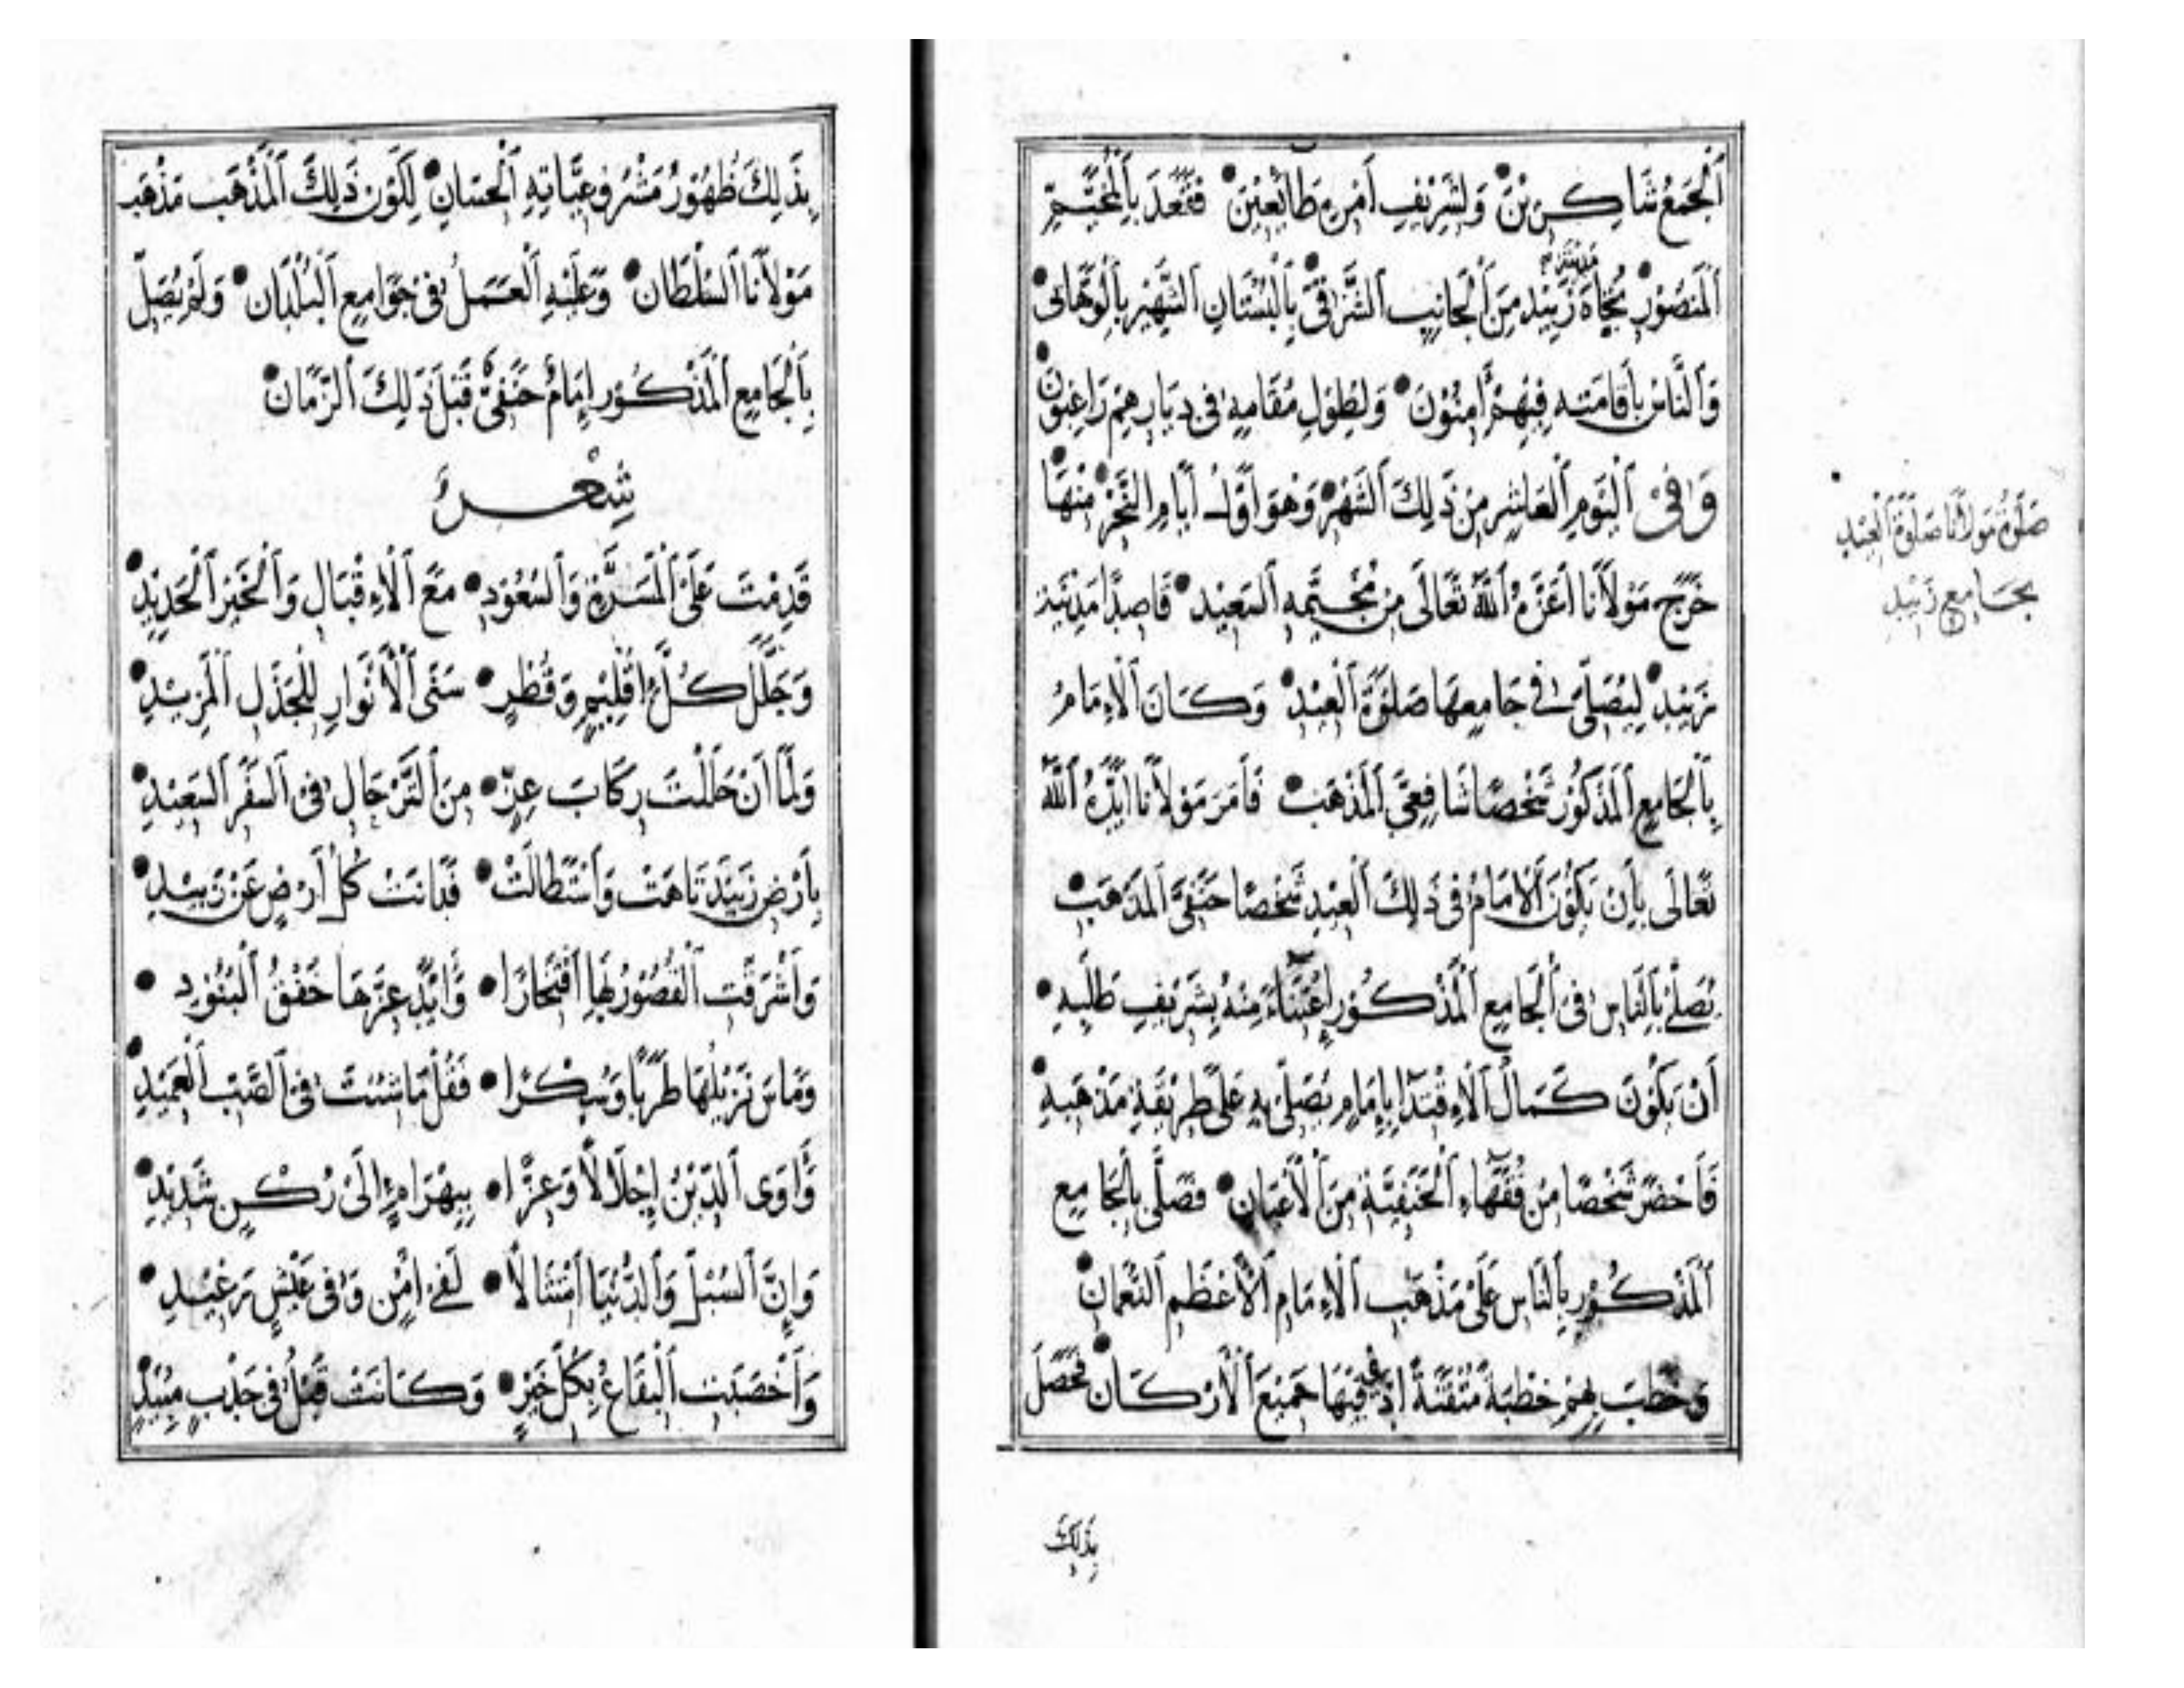 اَلْجَمْعُ شَاكِرِيْنَ وَلِشَرِيْفِ اَمْرِهِ طَائِعِيْنَ فَقَعَدَ بِالْمُخَيَّمِ
اَلْمَنْصُوْرِ تُجَاهَ مَدِيْنَةِ زَبِيْدِ مِنَ اَلْجَانِبِ اَلشَّرْقِىِّ بِالْبُسْتَانِ اَلشَّهِيْرِ بِالْوَهَّابِىْ
وَالنَّاسُ بِاِقَامَتِهِ فِيْهِمْ اٰمِنُوْنَ وَلِطُوْلِ مُقَامِهِ فِى دِيَارِهِمْ رَاغِبُوْنَ
وَفِىْ اَلْيَوْمِ اَلْعَاشِرِ مِنْ ذٰلِكَ اَلشَّهْرِ وَهُوَ اَوَّلُ اَيَّامِ النَّحْرِ مِنْهَا
خَرَجَ مَوْلَانَا اَعَزَّهُ اَللّٰهُ تَعَالَى مِنْ مُخَيَّمِهِ اَلسَّعِيْدِ قَاصِدًا مَدِيْنَةَ
زَبِيْدِ لِيُصَلِّىَ فِى جَامِعِهَا صَلٰوةَ اَلْعِيْدِ وَكَانَ اَلْاِمَامُ
بِالْجَامِعِ اَلْمَذْكُوْرِ شَخْصًا شَافِعِىَّ اَلْمَذْهَبِ فَاَمَرَ مَوْلَانَا اَيَّدَهُ اَللّٰهُ
تَعَالَى بِاَنْ يَكُوْنَ اَلْاِمَامُ فِى ذٰلِكَ اَلْعِيْدِ شَخْصًا حَنَفِىَّ اَلْمَذْهَبِ
يُصَلِّىْ بِالنَّاسِ فِى اَلْجَامِعِ اَلْمَذْكُوْرِ اِعْتِنَاءً مِنْهُ بِشَرِيْفِ طَلَبِهِ
اَنْ يَكُوْنَ كَمَالُ اَلْاِقْتِدَا بِاِمَامٍ يُصَلِّىْ بِهِ عَلَى طَرِيْقَةِ مَذْهَبِهِ
فَاَحْضَرَ شَخْصًا مِنْ فُقَهَاءِ اَلْحَنَفِيَّةِ مِنَ اَلْاَعْيَانِ فَصَلَّى بِالْجَامِعِ
اَلْمَذْكُوْرِ بِالنَّاسِ عَلَى مَذْهَبِ اَلْاِمَامِ اَلْاَعْظَمِ اَلنُّعْمَانِ
وَخَطَبَ بِهِمْ خِطْبَةً مُتْقَنَةً اَدَّى فِيْهَا جَمِيْعَ اَلْاَرْكَانِ فَحَصَلَ
بِذٰلِكَ
صَلٰوةُ مَوْلَانَا صَلٰوةَ اَلْعِيْدِ
بِجَامِعِ زَبِيْدِ
بِذٰلِكَ ظُهُوْرُ مَشْرُوْعِيَّاتِهِ اَلْحِسَانِ لِكَوْنِ ذٰلِكَ اَلْمَذْهَبِ مَذْهَبَ
مَوْلَانَا اَلسُّلْطَانِ وَعَلَيْهِ اَلْعَمَلُ فِى جَوَامِعِ اَلْبُلْدَانِ وَلَمْ يُصَلِّ
بِالْجَامِعِ اَلْمَذْكُوْرِ اِمَامٌ حَنَفِىٌّ قَبْلَ ذٰلِكَ اَلزَّمَانِ
شِعْرٌ
قَدِمْتَ عَلَى اَلْمَسَرَّةِ وَالسُّعُوْدِ مَعَ اَلْاِقْبَالِ وَالْخَيْرِ اَلْجَدِيْدِ
وَجَلَّلَ كُلَّ اِقْلِيْمٍ وَقُطْرٍ سَنَى اَلْاَنْوَارِ لِلْجَذْلِ اَلْمَزِيْدِ
وَلَمَّا اَنْ حَلَلْتَ رِكَابَ عِزٍّ مِنَ اَلتَّرْحَالِ فِى اَلسَّفَرِ اَلسَّعِيْدِ
بِاَرْضِ زَبِيْدَ تَاهَتْ وَاسْتَطَالَتْ فَدَانَتْ كُلُّ اَرْضٍ عَنْ زَبِيْدِ
وَاَشْرَقَتِ اَلْقُصُوْرُ بِهَا اِفْتِخَارًا وَاَيَّدَ عِزَّهَا خَفْقُ اَلْبُنُوْدِ
وَمَاسَ نَزِيْلُهَا طَرَبًا وَسُكْرًا فَقُلْ مَا شِئْتَ فِى اَلصَّبِّ اَلْعَمِيْدِ
وَاٰوَى اَلدِّيْنُ اِجْلَالًا وَعِزًّا بِبِهْرَامٍ اِلَى رُكْنٍ شَدِيْدِ
وَاِنَّ اَلسُّبْلَ وَالدُّنْيَا اَمْتِثَالًا لَفِى اَمْنٍ وَفِى عَيْشٍ رَغِيْدِ
وَاَخْصَبَتِ اَلْبِقَاعُ بِكُلِّ خَيْرٍ وَكَانَتْ قَبْلُ فِى جَدْبٍ مُبِيْدِ